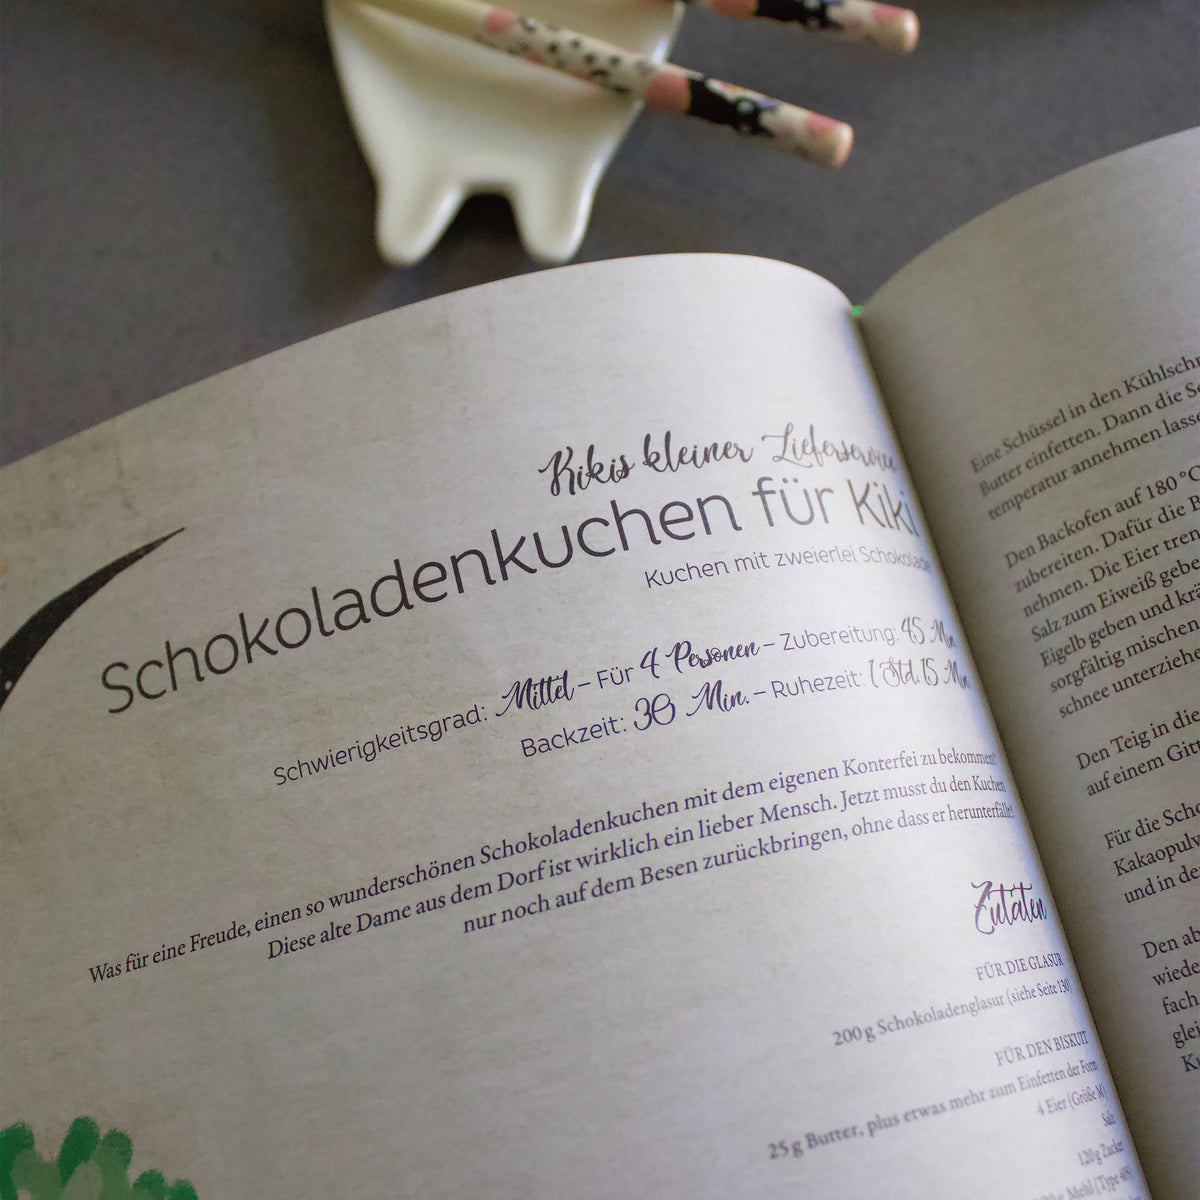 Kikis kleiner Lieferservice
Schokoladenkuchen für Kiki
Kuchen mit zweierlei Schokolade
Schwierigkeitsgrad: Mittel – Für 4 Personen – Zubereitung: 45 Min.
Backzeit: 30 Min. – Ruhezeit: 1 Std. 15 Min.
Was für eine Freude, einen so wunderschönen Schokoladenkuchen mit dem eigenen Konterfei zu bekommen!
Diese alte Dame aus dem Dorf ist wirklich ein lieber Mensch. Jetzt musst du den Kuchen
nur noch auf dem Besen zurückbringen, ohne dass er herunterfällt!
Zutaten
FÜR DIE GLASUR
200 g Schokoladenglasur (siehe Seite 130)
FÜR DEN BISKUIT
25 g Butter, plus etwas mehr zum Einfetten der Form
4 Eier (Größe M)
Salz
120 g Zucker
Mehl (Type 405)
Eine Schüssel in den Kühlschr
Butter einfetten. Dann die Sc
temperatur annehmen lasse
Den Backofen auf 180 °C
zubereiten. Dafür die B
nehmen. Die Eier tren
Salz zum Eiweiß gebe
Eigelb geben und krä
sorgfältig mischen
schnee unterziehe
Den Teig in die
auf einem Gitt
Für die Scho
Kakaopulv
und in de
Den ab
wiede
fach
glei
Ku